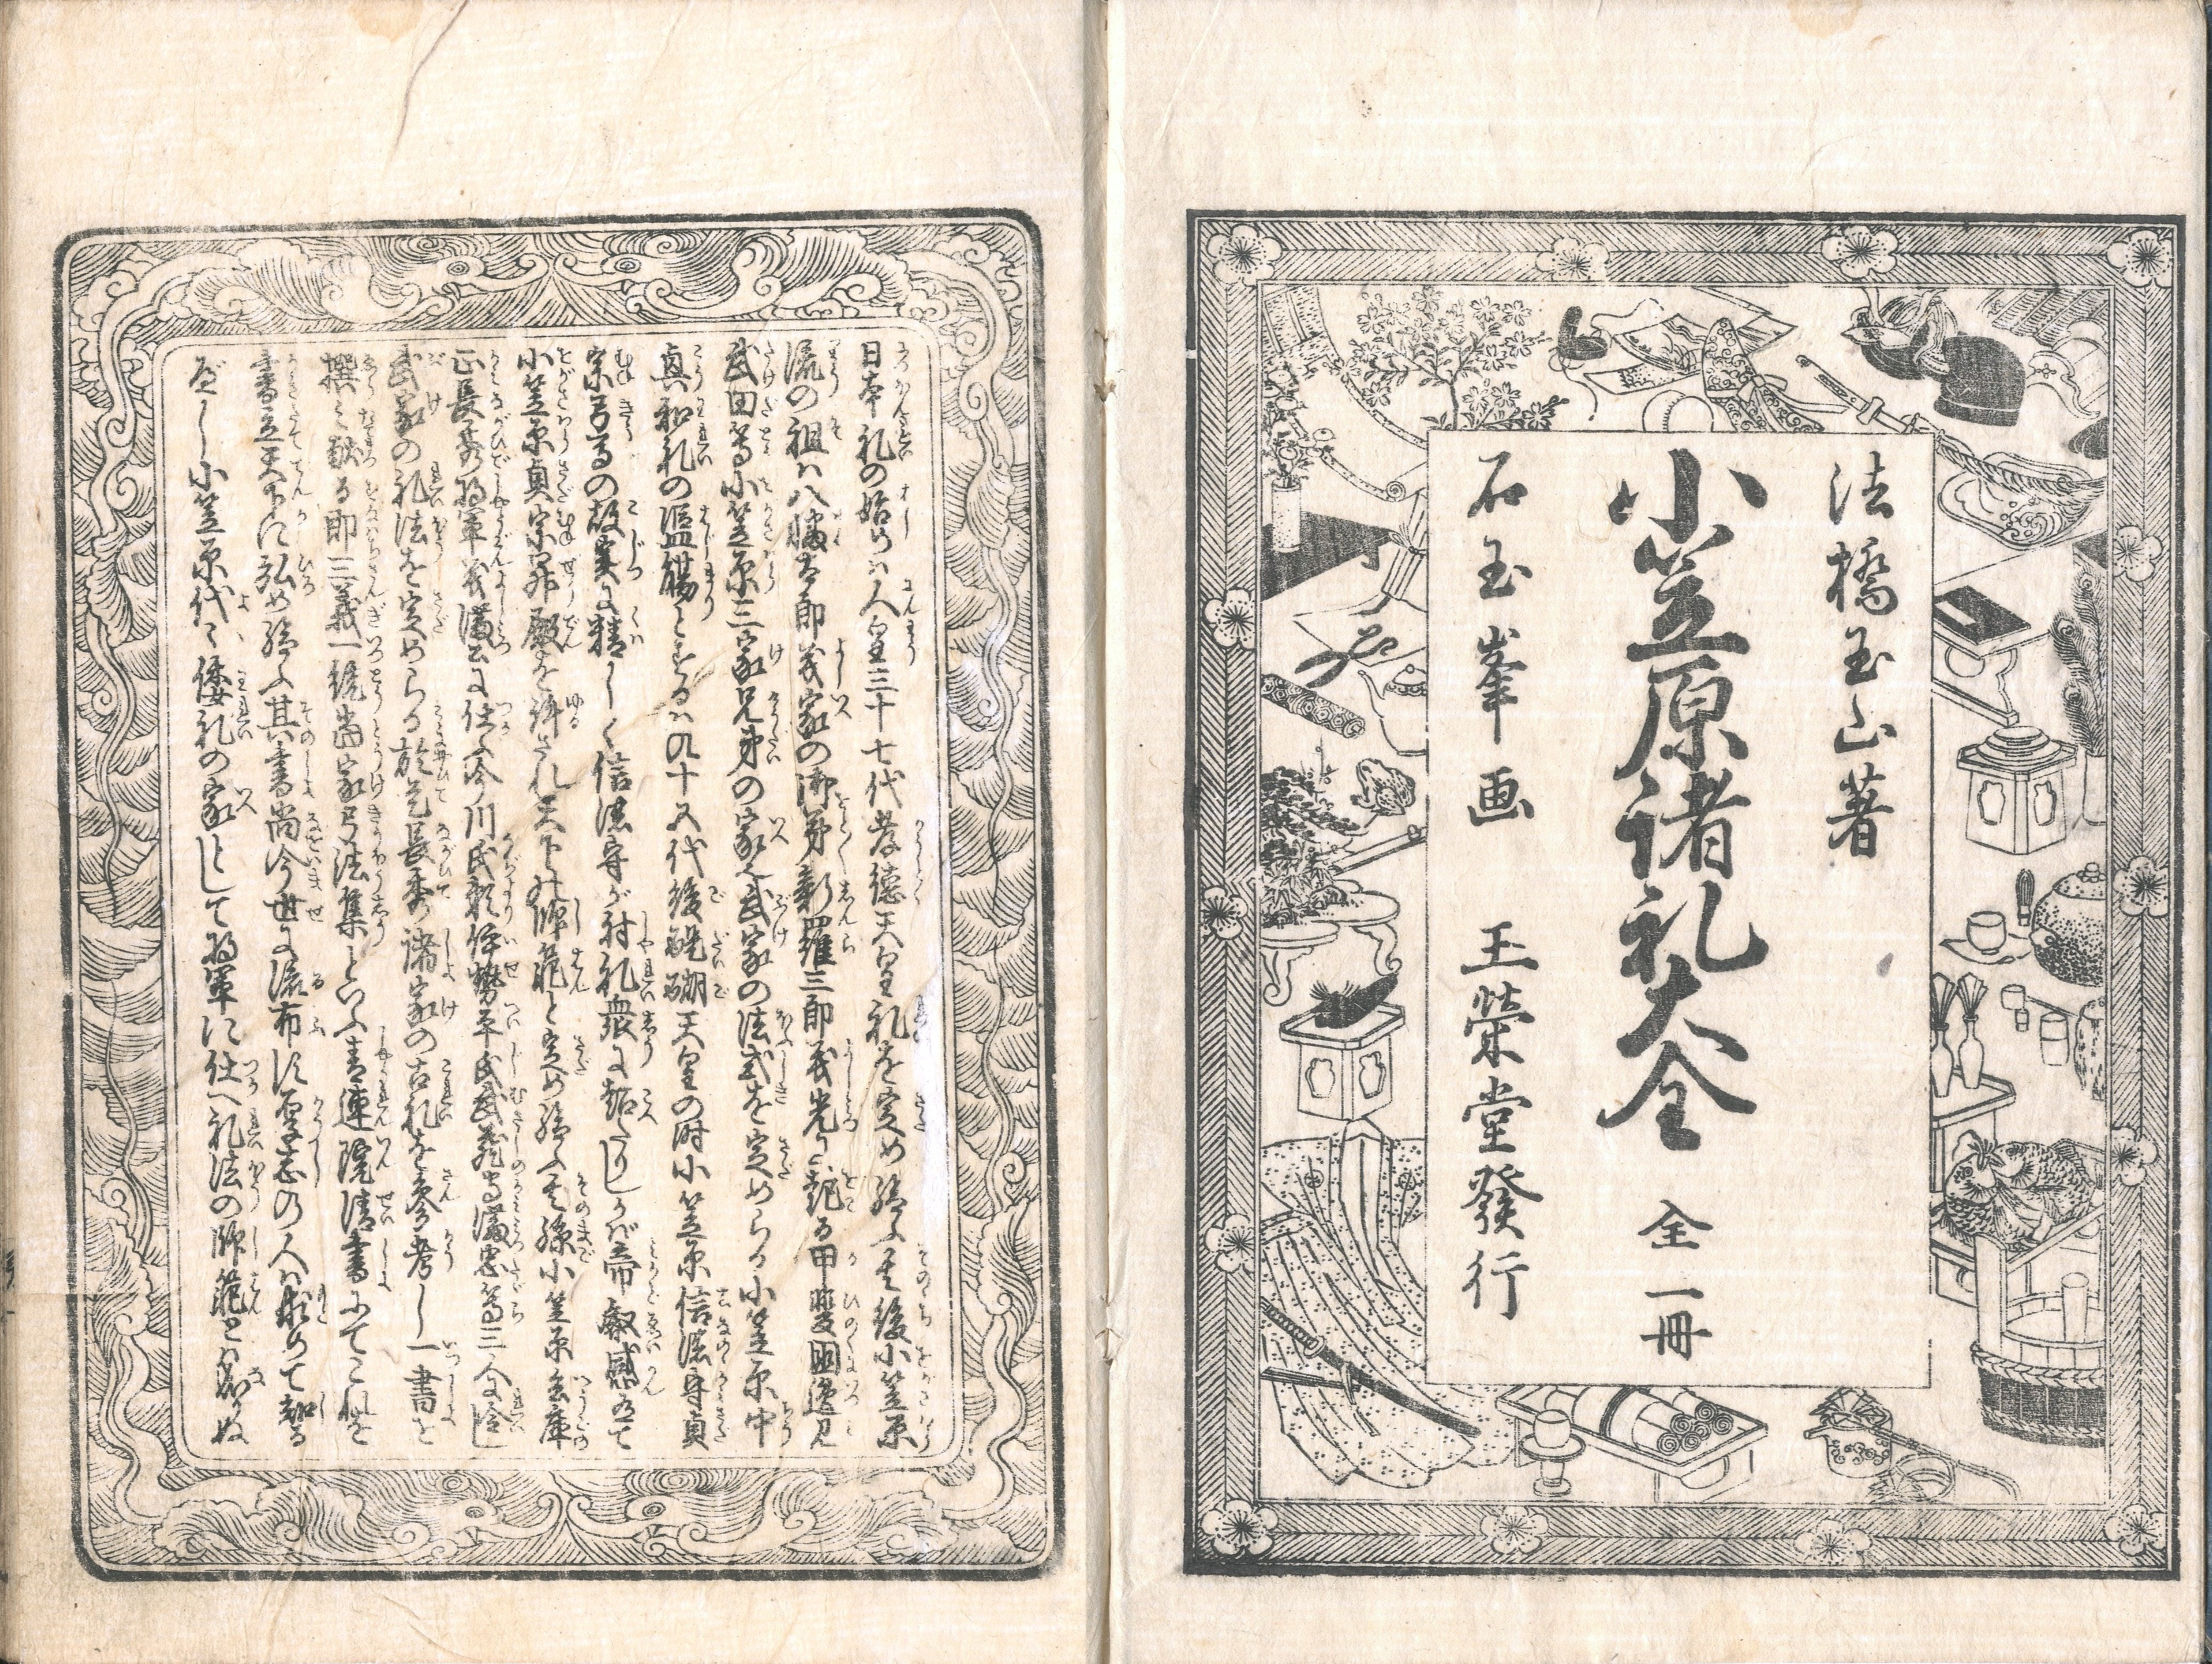 法橋玉山著
小笠原諸礼大全 全一冊
石玉峯画 玉榮堂發行
日本礼の始めハ人皇三十七代孝徳天皇礼を定め給ふ其後小笠原
流の祖ハ八幡太郎義家の御弟新羅三郎義光に起る甲斐国逸見
武田等小笠原三家兄弟の家之武家の法式を定めらる小笠原中
真和礼の濫觴とするハ九十五代後醍醐天皇の時小笠原信濃守貞
宗弓馬の故実に精しく信濃守が射礼衆に超たりしかバ帝叡感有て
小笠原貞宗昇殿を許され天下の師範と定め給ふ其孫小笠原兵庫
正長秀将軍義満公に仕ふ今川氏頼伊勢平氏武蔵守満忠等三人に令し
武家の礼法を定めらる於是長秀諸家の古礼を參考し一書を
撰ミ献る即三義一統当家弓法集といふ青連院清書にてこれを
書立天下に弘め給ふ其書尚今世に流布す厚志の人ハ求めて知る
べし小笠原代々倭礼の家として将軍に仕へ礼法の師範とハ成ぬ